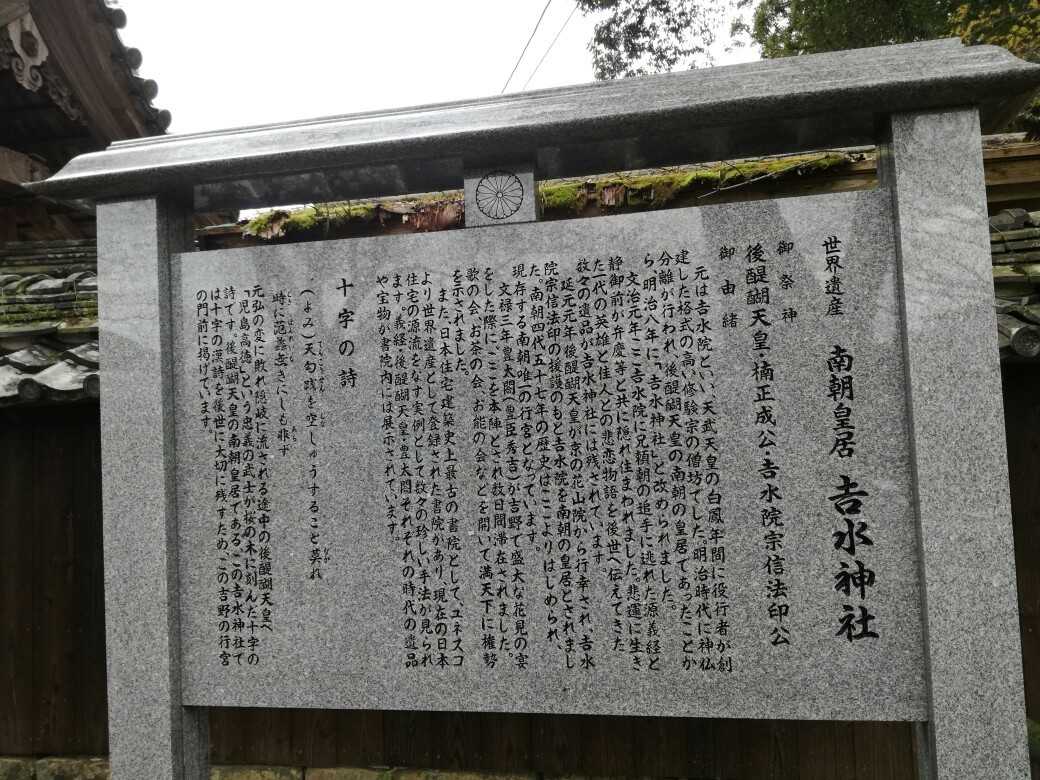 世界遺産　南朝皇居　吉水神社
御祭神
後醍醐天皇・楠正成公・吉水院宗信法印公
御由緒
元は吉水院といい、天武天皇の白鳳年間に役行者が創
建した格式の高い修験宗の僧坊でした。明治時代に神仏
分離が行われ、後醍醐天皇の南朝の皇居であったことか
ら、明治八年に、「吉水神社」と改められました。
文治元年ここ吉水院に兄頼朝の追手に逃れた源義経と
静御前が弁慶等と共に隠れ住まわれました。悲運に生き
た一代の英雄と佳人との悲恋物語を後世へ伝えてきた
数々の遺品が吉水神社には残されています
延元元年後醍醐天皇が京の花山院から行幸され、吉水
院宗信法印の援護のもと吉水院を南朝の皇居とされまし
た。南朝四代五十七年の歴史はここよりはじめられ、
現存する南朝唯一の行宮となっています。
文禄三年豊太閤(豊臣秀吉)が吉野で盛大な花見の宴
をした際に、ここを本陣とされ数日間滞在されました。
歌の会、お茶の会、お能の会などを開いて、満天下に権勢
を示されました。
また、日本住宅建築史上最古の書院として、ユネスコ
より世界遺産として登録された書院があり、現在の日本
住宅の源流をなす実例として数々の珍しい手法が見られ
ます。義経・後醍醐天皇・豊太閤それぞれの時代の遺品
や宝物が書院内には展示されています。
十字の詩
(よみ)天勾践を空しゅうすること莫れ
時に范蠡無きにしも非ず
元弘の変に敗れ隠岐に流される途中の後醍醐天皇へ
「児島高徳」という忠義の武士が桜の木に刻んだ十字の
詩です。後醍醐天皇の南朝皇居であるこの吉水神社で
は十字の漢詩を後世に大切に残すため、この吉野の行宮
の門前に掲げています。